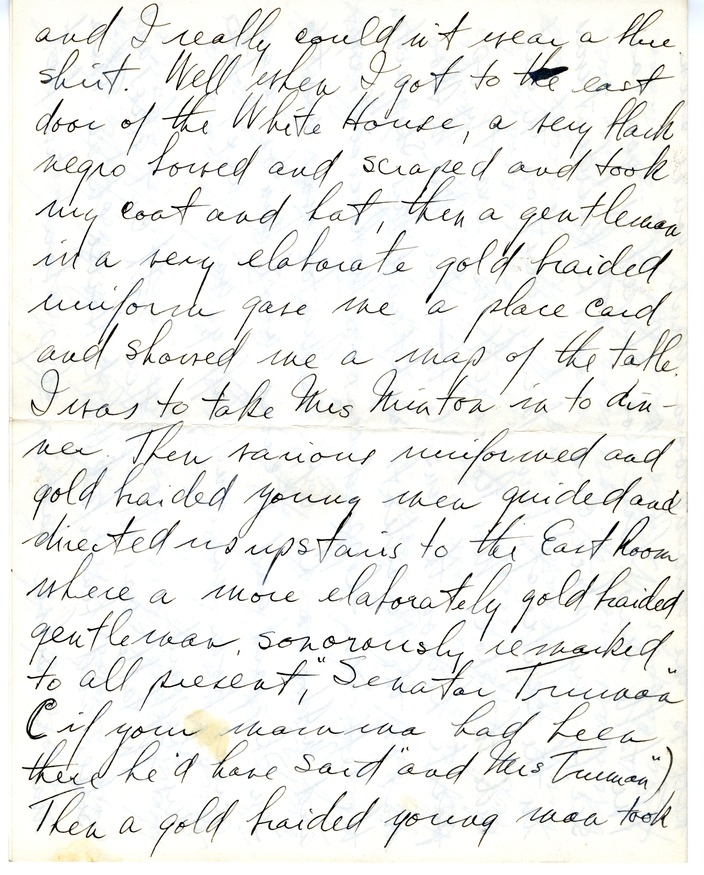 and I really couldn't wear a blue
shirt. Well when I got to the east
door of the White House, a very black
negro bowed and scraped and took
my coat and hat, then a gentleman
in a very elaborate gold braided
uniform gave me a place card
and showed me a map of the table.
I was to take Mrs Minton in to din-
ner. Then various uniformed and
gold braided young men guided and
directed us upstairs to the East Room
where a more elaborately gold braided
gentleman, sonorously remarked
to all present, "Senator Truman"
(if your mamma had been
there he'd have said "and Mrs Truman")
Then a gold braided young man took